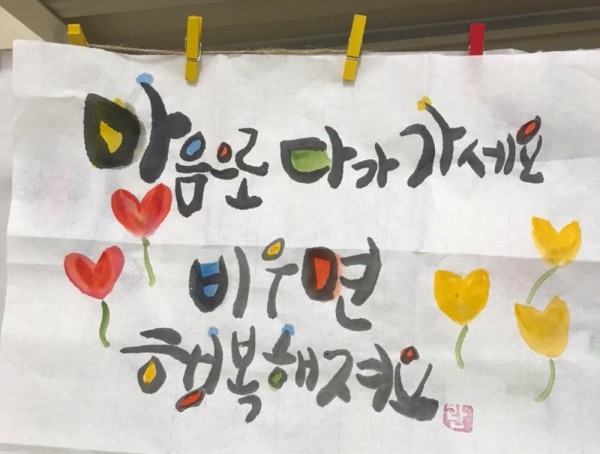 마음로 다가 가세요
비우면
행복해져요
란